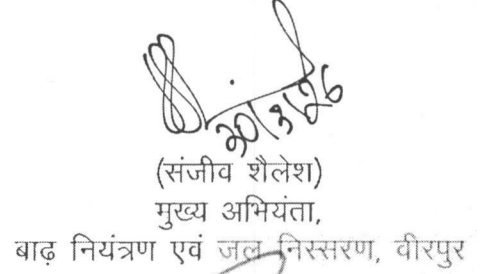 30/3/26
(संजीव शैलेश)
मुख्य अभियंता,
बाढ़ नियंत्रण एवं जल निस्सरण, वीरपुर